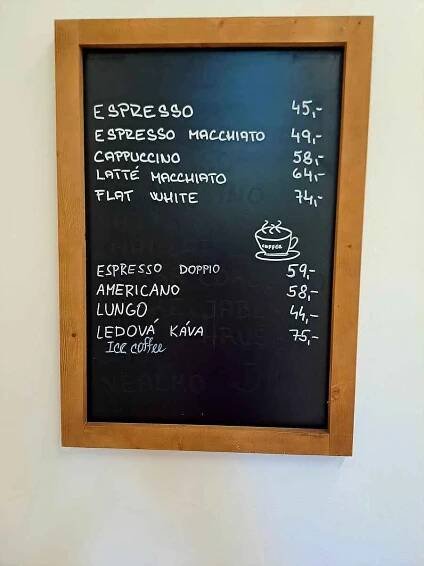 ESPRESSO 45,-
ESPRESSO MACCHIATO 49,-
CAPPUCCINO 58,-
LATTÉ MACCHIATO 64,-
FLAT WHITE 74,-
COFFEE
ESPRESSO DOPPIO 59,-
AMERICANO 58,-
LUNGO 44,-
LEDOVÁ KÁVA 75,-
Ice coffee